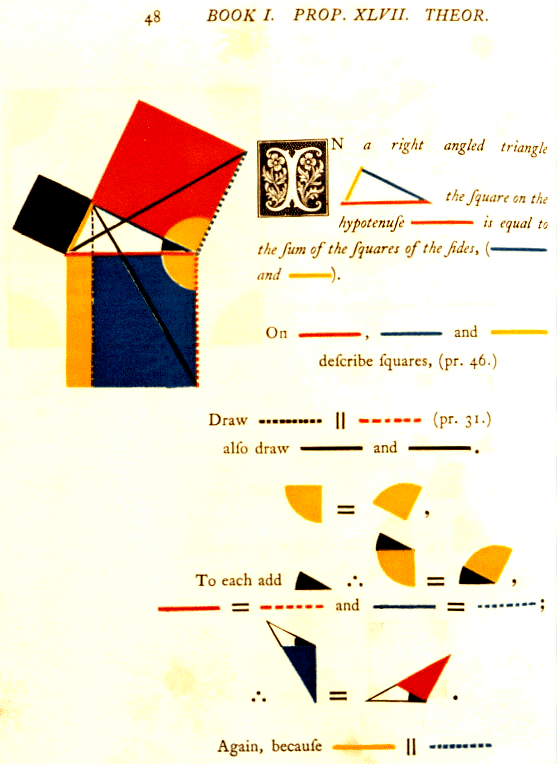 48 BOOK I. PROP. XLVII. THEOR.
IN a right angled triangle
the ſquare on the
hypotenuſe is equal to
the ſum of the ſquares of the ſides, (
and ).
On , and
deſcribe ſquares, (pr. 46.)
Draw || (pr. 31.)
alſo draw and .
= ,
To each add ∴ = ,
= and = ;
∴ = .
Again, becauſe ||